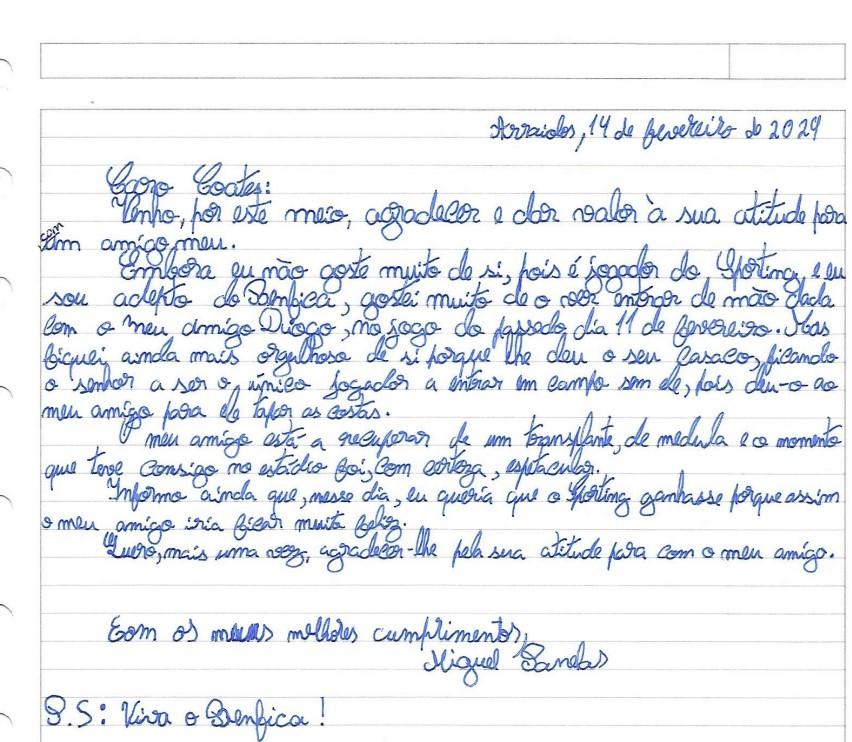 Arraiolos, 14 de fevereiro de 2024
Caro Coates:
Venho, por este meio, agradecer e dar valor à sua atitude para
com
um amigo meu.
Embora eu não goste muito de si, pois é jogador do Sporting, e eu
sou adepto do Benfica, gostei muito de o ver entrar de mão dada
com o meu amigo Diogo, no jogo do passado dia 11 de fevereiro. Mas
fiquei ainda mais orgulhoso de si porque lhe deu o seu casaco, ficando
o senhor a ser o único jogador a entrar em campo sem ele, pois deu-o ao
meu amigo para ele tapar as costas.
O meu amigo está a recuperar de um transplante, de medula e o momento
que teve consigo no estádio foi, com certeza, espetacular.
Informo ainda que, nesse dia, eu queria que o Sporting ganhasse porque assim
o meu amigo iria ficar muito feliz.
Quero, mais uma vez, agradecer-lhe pela sua atitude para com o meu amigo.
Com os meus melhores cumprimentos,
Miguel
P.S: Viva o Benfica!